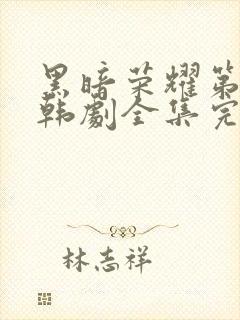 黑暗荣耀第
韩剧全集完
林志祥